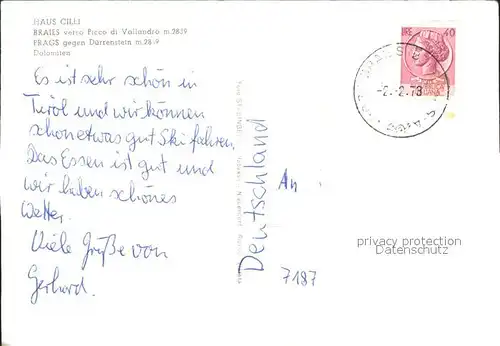 HAUS CILLI
BRAIES verso Picco di Vallandro m.2839
PRAGS gegen Dürrenstein m.2839
Dolomiten
Es ist sehr schön in
Tirol und wir können
schon etwas gut Ski fahren.
Das Essen ist gut und
wir haben schönes
Wetter.
Viele Grüße von
Gerhard.
Deutschland
An
7187
LIRE 40
-2.-2.78
privacy protection
Datenschutz